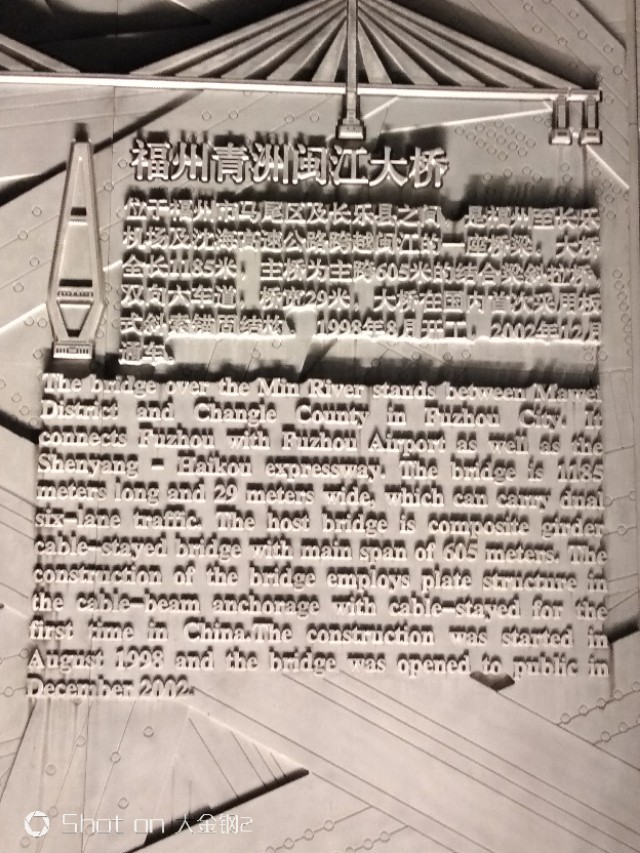 福州青洲闽江大桥
位于福州市马尾区及长乐县之间，是福州至长乐
机场及沈海高速公路跨越闽江的一座桥梁。大桥
全长1185米，主桥为主跨605米的结合梁斜拉桥，
双向六车道，桥宽29米。大桥在国内首次采用板
式斜索锚固结构。1998年8月开工，2002年12月
通车。
The bridge over the Min River stands between Mawei
District and Changle County in Fuzhou City. It
connects Fuzhou with Fuzhou Airport as well as the
Shenyang - Haikou expressway. The bridge is 1185
meters long and 29 meters wide, which can carry dual
six-lane traffic. The host bridge is composite girder
cable-stayed bridge with main span of 605 meters. The
construction of the bridge employs plate structure in
the cable-beam anchorage with cable-stayed for the
first time in China.The construction was started in
August 1998 and the bridge was opened to public in
December 2002.
Shot on 大金钢2